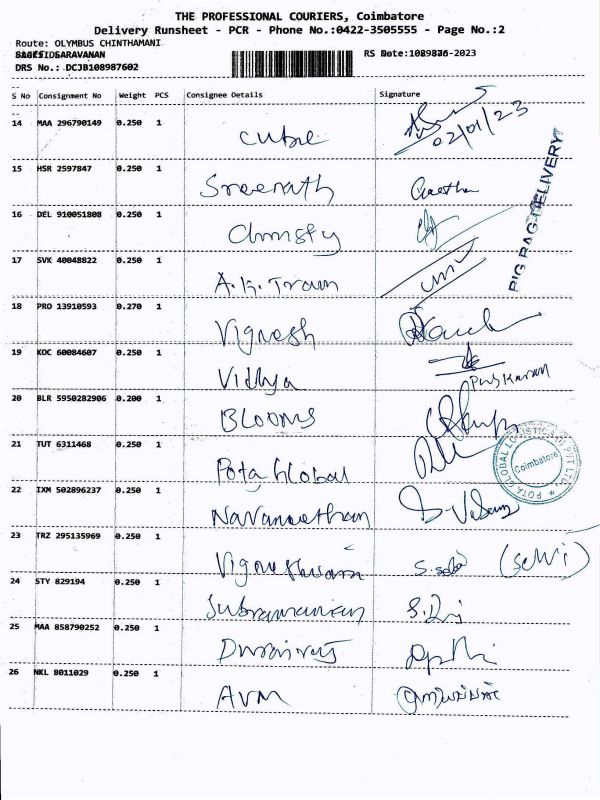 THE PROFESSIONAL COURIERS, Coimbatore
Delivery Runsheet - PCR - Phone No.:0422-3505555 - Page No.:2
Route: OLYMBUS CHINTHAMANI
SARAVANAN
DRS No.: DCJB108987602
S No Consignment No Weight PCS Consignee Details Signature
14 MAA 296790149 0.250 1 Cube 02/01/23
15 HSR 2597847 0.250 1 Sreenath Geetha
16 DEL 910051808 0.250 1
17 SVK 40048822 0.250 1 A.K. Tram
18 PRO 13910593 0.270 1 Vignesh
19 KOC 60084607 0.250 1 Vidhya
20 BLR 5950282906 0.200 1 BLOOMS
21 TUT 6311468 0.250 1 Pota Global
22 IXM 502896237 0.250 1 Navaneethan
23 TRZ 295135969 0.250 1 Vigneshwara (Selvi)
24 STY 829194 0.250 1 Subramanian
25 MAA 858790252 0.250 1 Durairaj
26 NKL 8011029 0.250 1 AVM
BIG BAG DELIVERY
POTA GLOBAL LOGISTICS (I) PVT LTD.
Coimbatore